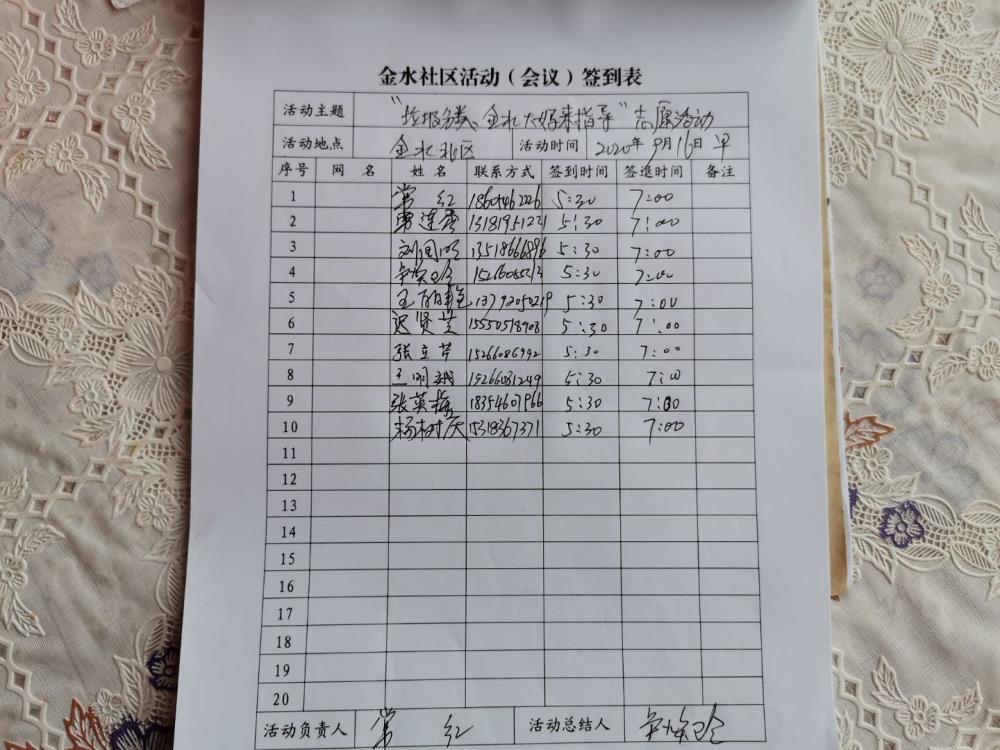 金水社区活动（会议）签到表
活动主题 "垃圾分类、金水大妈来指导"志愿活动
活动地点 金水社区 活动时间 2020年9月16日 早
序号 网 名 姓 名 联系方式 签到时间 签退时间 备注
1 常 红 5:30 7:00
2 13181951221 5:30 7:00
3 刘国明 13518666896 5:30 7:00
4 5:30 7:00
5 13793050219 5:30 7:00
6 迟贤兰 15550518908 5:30 7:00
7 张立芹 5:30 7:00
8 王明娥 15266031249 5:30 7:00
9 张英梅 18354607966 5:30 7:00
10 杨树庆 15318367371 5:30 7:00
11
12
13
14
15
16
17
18
19
20
活动负责人 常 红 活动总结人